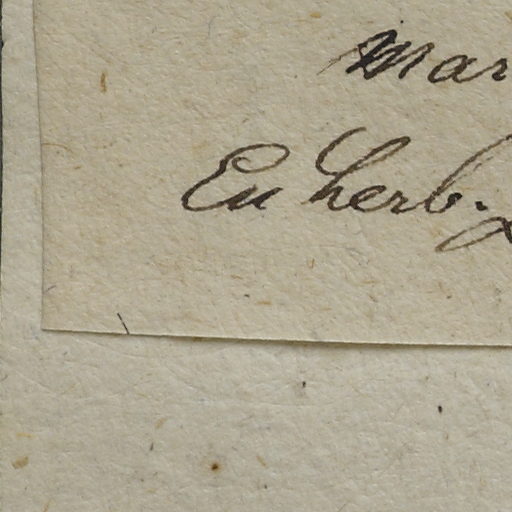 Mar
Ex herb.